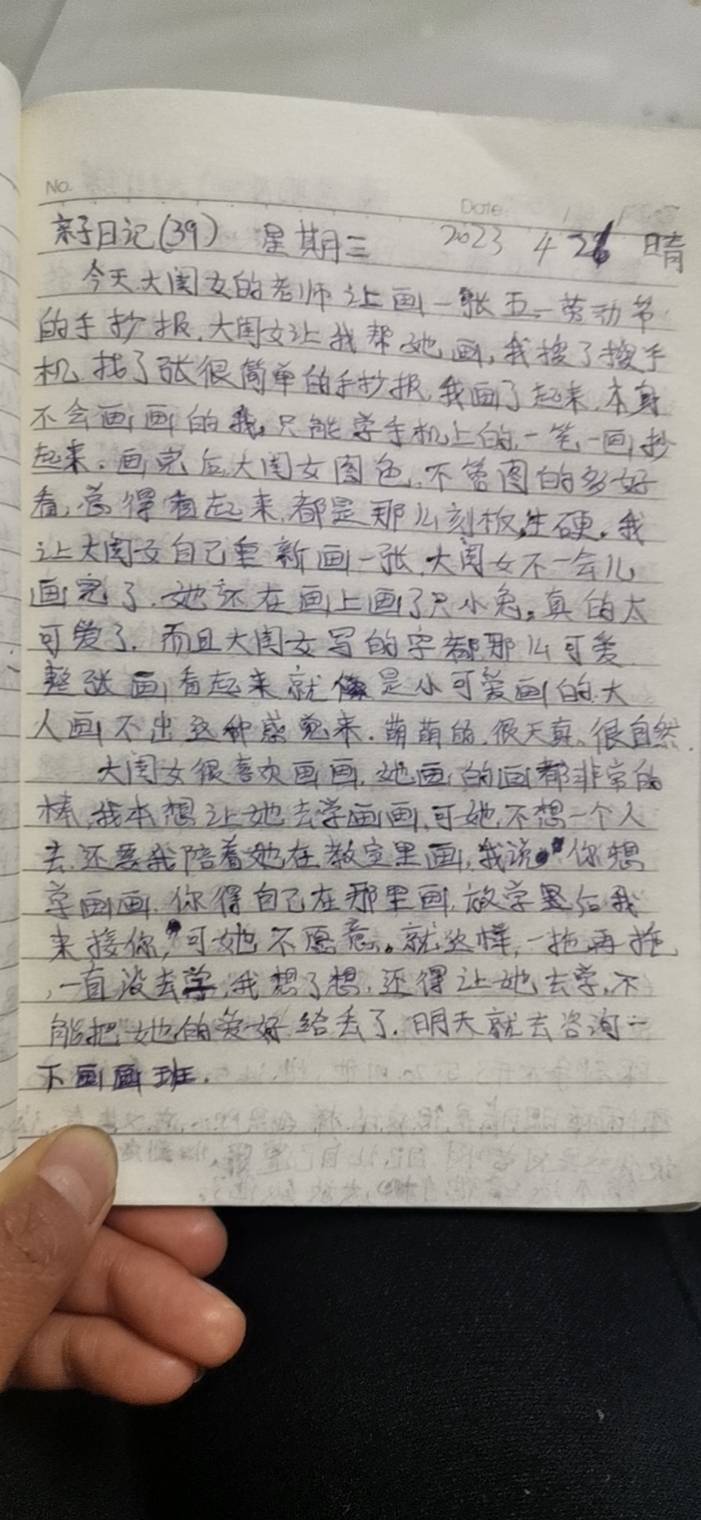 No.
Date
亲子日记(39) 星期三 2023 4 26 晴
今天大闺女的老师让画一张五一劳动节
的手抄报,大闺女让我帮她画,我搜了搜手
机,找了张很简单的手抄报,我画了起来,本身
不会画画的我,只能学手机上的一笔一画抄
起来。画完后大闺女图色,不管图的多好
看,总得看起来都是那么刻板,生硬。我
让大闺女自己重新画一张,大闺女不一会儿
画完了。她还在画上画了只小兔,真的太
可爱了。而且大闺女写的字都那么可爱
整张画看起来就是小可爱画的,大
人画不出这种感觉来。萌萌的,很天真。很自然.
大闺女很喜欢画画,她画的画都非常的
棒,我本想让她去学画画,可她不想一个人
去,还要我陪着她在教室里画,我说:“你想
学画画,你得自己在那里画,放学后我
来接你,”可她不愿意。就这样,一拖再拖
,一直没去学,我想了想,还得让她去学,不
能把她的爱好给丢了.明天就去咨询一
下画画班.